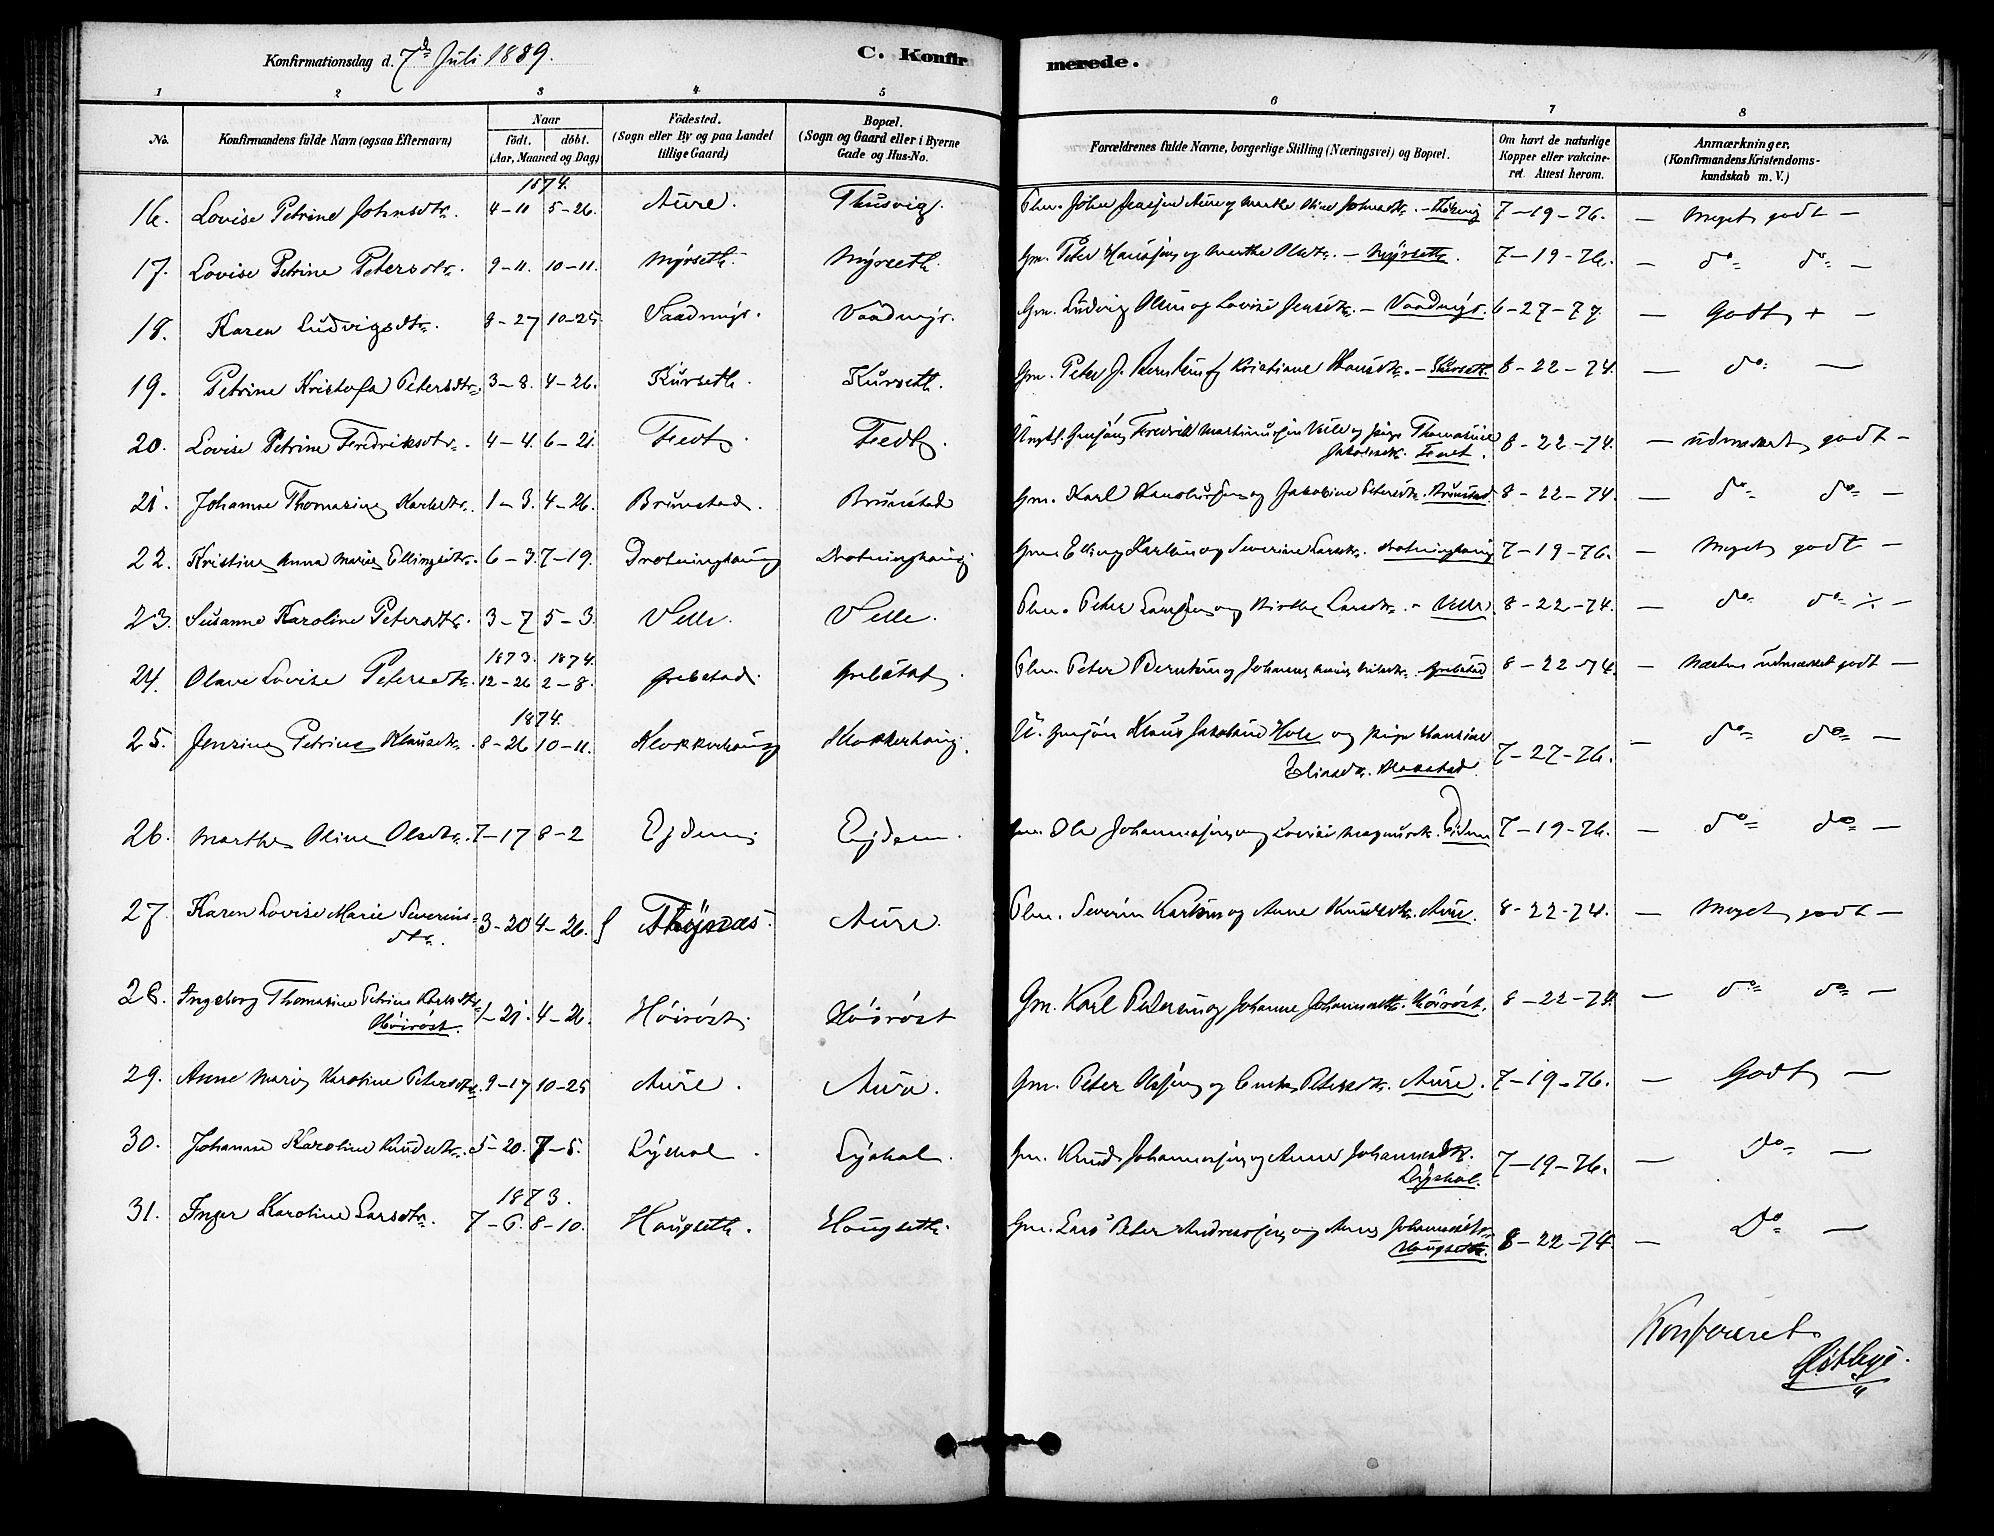 Konfirmationsdag d. 7de Juli 1889.
C. Konfir merede.
1 2 3 4 5 6 7 8
No.
Konfirmandens fulde Navn (ogsaa Efternavn)
Naar
födt. döbt.
(Aar, Maaned og Dag)
Födested.
(Sogn eller By og paa Landet
tillige Gaard)
Bopæl.
(Sogn og Gaard eller i Byerne
Gade og Hus-No.
Forældrenes fulde Navne, borgerlige Stilling (Næringsvei) og Bopæl.
Om havt de naturlige
Kopper eller vakcine-
ret. Attest herom.
Anmærkninger.
(Konfirmandens Kristendoms-
kundskab m. V.)
1874.
16. Lovise Petrine Johnsdtr. 4-11 5-26. Aure. Thusvig. Aure og Marthe Johnsdtr. 7-19-76. - Meget godt -
17. Lovise Petrine Petersdtr. 9-11. 10-11. Myrseth. Myrseth. Gm. Peter Hansen og Marthe Olsdtr. - Myrseth. 7-19-76. - do do -
18. Karen Ludvigsdtr. 8-27 10-25 Vaadmyr. Vaadmyr. Gm. Ludvig Olsen og Lovise Jensdtr. - Vaadmyr. 6-27-77. - Godt + -
19. Petrine Kristofa Petersdtr. 3-8. 4-26. Kurseth. Kurseth. Gm. Peter J. Berntsen og Kristiane Hansdtr. - Kurseth. 8-22-74. - do -
20. Lovise Petrine Fredriksdtr. 4-4. 6-21. Tredt. Tredt. Ungkl. Fredrik Martinussen Velle og Pige Thomasine
Jakobsdtr. 8-22-74. - udmærket godt -
21. Johanne Thomasine Karlsdtr. 1-3. 4-26. Brunstad. Brunstad Gm. Karl og Jakobine Petersdtr. Brunstad 8-22-74. - do do -
22. Kristine Anna Marie Ellingsdtr. 6-3. 7-19. Drotninghaug Drotninghaug Gm. Elling Karlsen og Severine Larsdtr. Drotninghaug 7-19-76. - Meget godt -
23. Susanne Karoline Petersdtr. 3-7 5-3. Velle. Velle. Peter Larsen og Birthe Larsdtr. - Velle. 8-22-74. - do do -
1873. 1874.
24. Olave Lovise Petersdtr. 12-26 2-8. Grebstad. Grebstad. Peter Berntsen og Johanne Grebstad 8-22-74. - Næsten udmærket godt -
1874.
25. Jensine Petrine Klausdtr. 8-26 10-11. Klokkerhaug Klokkerhaug. Klaus Jakobsen Hole og Pige Hansine
Elinsdtr. 7-27-76. - do do -
26. Marthe Oline Olsdtr. 7-17 8-2 Ejdem Ejdem. Ole Johannessen og Lovise Magnusdtr. Eidem 7-19-76. - do do -
27. Karen Lovise Marie Severins-
dtr. 3-20 4-26. Aure. Severin Karlsen og Anne Knudsdtr. Aure. 8-22-74. - Meget godt -
28. Ingeborg Thomasine Petrine Karlsdtr.
Höiröst. 1-21. 4-26. Höiröst. Höiröst Gm. Karl Petersen og Johanne Johannesdtr. Höiröst. 8-22-74. - do do -
29. Anne Marie Karoline Petersdtr. 9-17 10-25 Aure. Aure. Gm. Peter Petersdtr. Aure. 7-19-76. - Godt -
30. Johanne Karoline Knudsdtr. 5-20. 7-5. Lyshol. Lyshol. Gm. Knud Johannessen og Anne Johannesdtr.
Lyshol. 7-19-76. - do -
1873.
31. Inger Karoline Larsdtr. 7-6. 8-10. Haugseth. Haugseth. Gm. Lars Peter Andreassen og Anne Johannesdtr.
Haugseth. 8-22-74. - Do -
Konfereret